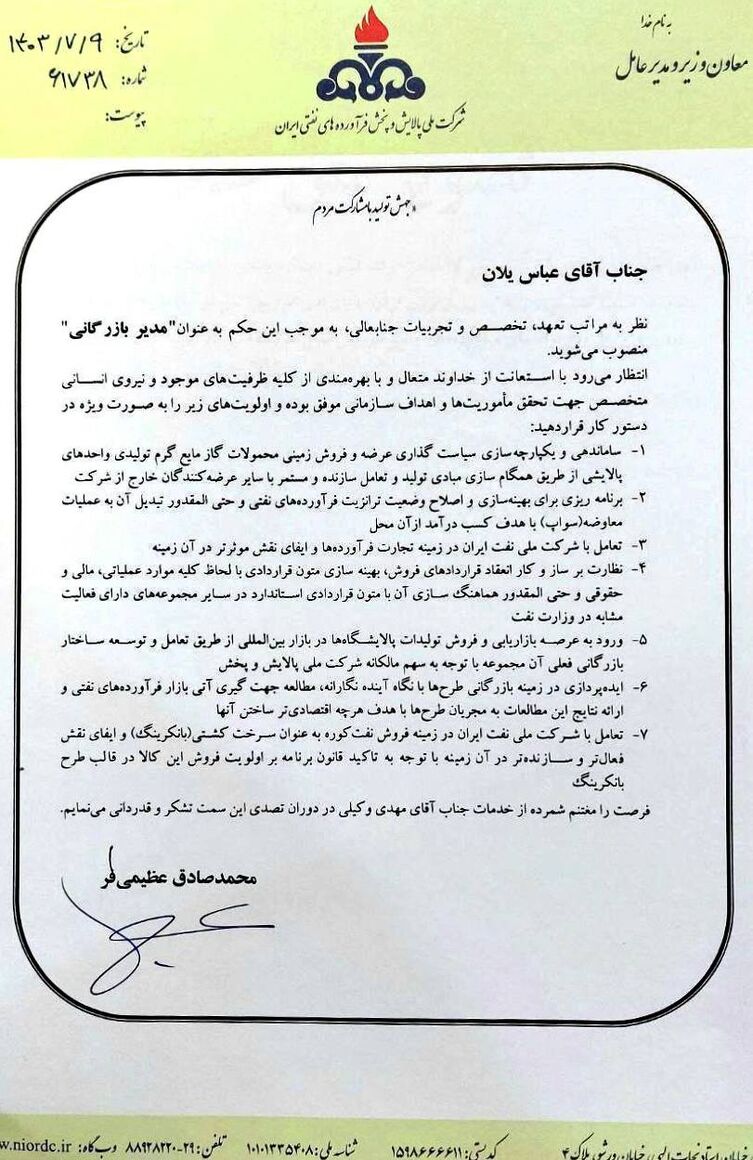 به نام خدا
معاون وزیر و مدیرعامل
شرکت ملی پالایش و پخش فرآورده های نفتی ایران
تاریخ: ۱۴۰۳/۷/۹
شماره: ۶۱۷۳۸
پیوست:
«جهش تولید با مشارکت مردم
جناب آقای عباس یلان
نظر به مراتب تعهد، تخصص و تجربیات جنابعالی، به موجب این حکم به عنوان"مدیر بازرگانی"
منصوب می‌شوید.
انتظار می‌رود با استعانت از خداوند متعال و با بهره‌مندی از کلیه ظرفیت‌های موجود و نیروی انسانی
متخصص جهت تحقق مأموریت‌ها و اهداف سازمانی موفق بوده و اولویت‌های زیر را به صورت ویژه در
دستور کار قراردهید:
۱- ساماندهی و یکپارچه‌سازی سیاست گذاری عرضه و فروش زمینی محمولات گاز مایع گرم تولیدی واحدهای
پالایشی از طریق همگام سازی مبادی تولید و تعامل سازنده و مستمر با سایر عرضه‌کنندگان خارج از شرکت
۲- برنامه ریزی برای بهینه‌سازی و اصلاح وضعیت ترانزیت فرآورده‌های نفتی و حتی المقدور تبدیل آن به عملیات
معاوضه(سواپ) با هدف کسب درآمد ازآن محل
۳- تعامل با شرکت ملی نفت ایران در زمینه تجارت فرآورده‌ها و ایفای نقش موثرتر در آن زمینه
۴- نظارت بر ساز و کار انعقاد قراردادهای فروش، بهینه سازی متون قراردادی با لحاظ کلیه موارد عملیاتی، مالی و
حقوقی و حتی المقدور هماهنگ سازی آن با متون قراردادی استاندارد در سایر مجموعه‌های دارای فعالیت
مشابه در وزارت نفت
۵- ورود به عرصه بازاریابی و فروش تولیدات پالایشگاه‌ها در بازار بین‌المللی از طریق تعامل و توسعه ساختار
بازرگانی فعلی آن مجموعه با توجه به سهم مالکانه شرکت ملی پالایش و پخش
۶- ایده‌پردازی در زمینه بازرگانی طرح‌ها با نگاه آینده نگارانه، مطالعه جهت گیری آتی بازار فرآورده‌های نفتی و
ارائه نتایج این مطالعات به مجریان طرح‌ها با هدف هرچه اقتصادی‌تر ساختن آنها
۷- تعامل با شرکت ملی نفت ایران در زمینه فروش نفت‌کوره به عنوان سرخت کشتی(بانکرینگ) و ایفای نقش
فعال‌تر و سازنده‌تر در آن زمینه با توجه به تاکید قانون برنامه بر اولویت فروش این کالا در قالب طرح
بانکرینگ
فرصت را مغتنم شمرده از خدمات جناب آقای مهدی وکیلی در دوران تصدی این سمت تشکر و قدردانی می‌نمایم.
محمدصادق عظیمی‌فر
خیابان استاد نجات الهی، خیابان ورشو، پلاک ۴ کد پستی: ۱۵۹۸۶۶۶۶۱۱ شناسه ملی: ۱۰۱۰۱۳۳۵۴۰۸ تلفن: ۲۹-۸۸۹۲۸۲۲۰ وب گاه: w.niordc.ir